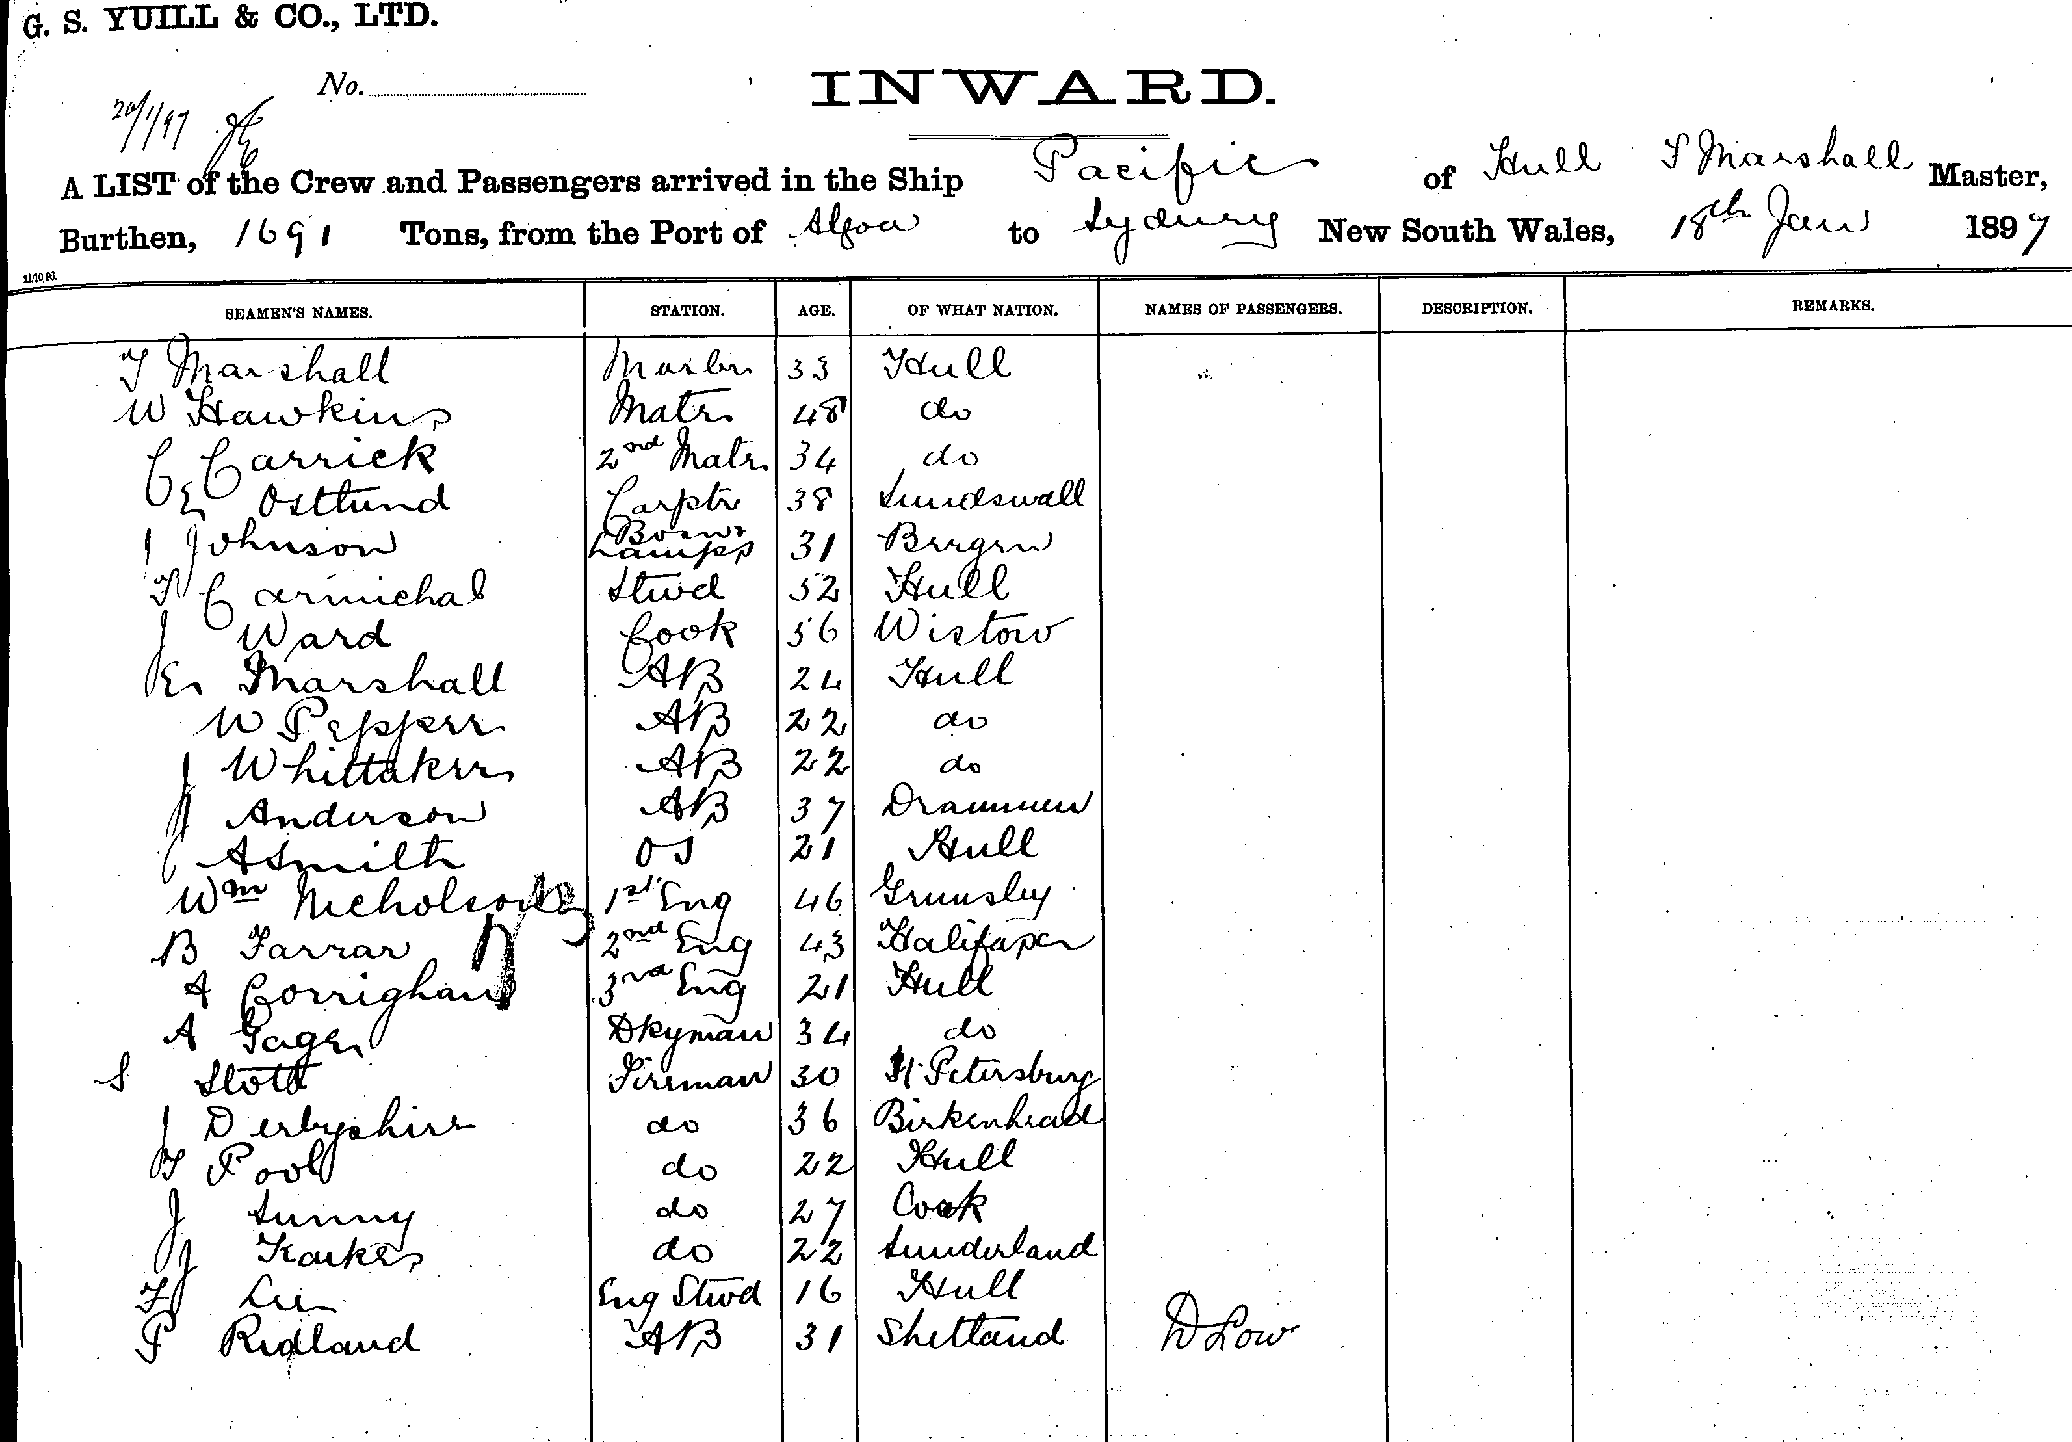 G. S. YUILL & CO., LTD.
No.
INWARD.
20/1/97
A LIST of the Crew and Passengers arrived in the Ship Pacific of Hull T Marshall Master,
Burthen, 1691 Tons, from the Port of Algoa to Sydney New South Wales, 18th Jan 1897
SEAMEN'S NAMES. STATION. AGE. OF WHAT NATION. NAMES OF PASSENGERS. DESCRIPTION. REMARKS.
T Marshall Master 33 Hull
W Hawkins Mate 48 do
C Carrick 2nd Mate 34 do
C E Ostlund Carptr 38 Sundswall
J Johnson Bosn & Lamps 31 Bergen
T Carmichal Stwd 52 Hull
J Ward Cook 56 Wistow
E Marshall AB 24 Hull
W Pepper AB 22 do
J Whittaker AB 22 do
J Anderson AB 37 Drammen
A Smith OS 21 Hull
Wm Nicholson 1st Eng 46 Grimsley
B Farrar 2nd Eng 43 Halifax
A Corrighan 3rd Eng 21 Hull
A Gage Dkyman 34 do
S Stott Fireman 30 St Petersburg
J Derbyshire do 36 Birkenhead
T Pool do 22 Hull
J Sunny do 27 Cork
J Kaike do 22 Sunderland
F Lee Eng Stwd 16 Hull
P Ridland AB 31 Shetland D Low